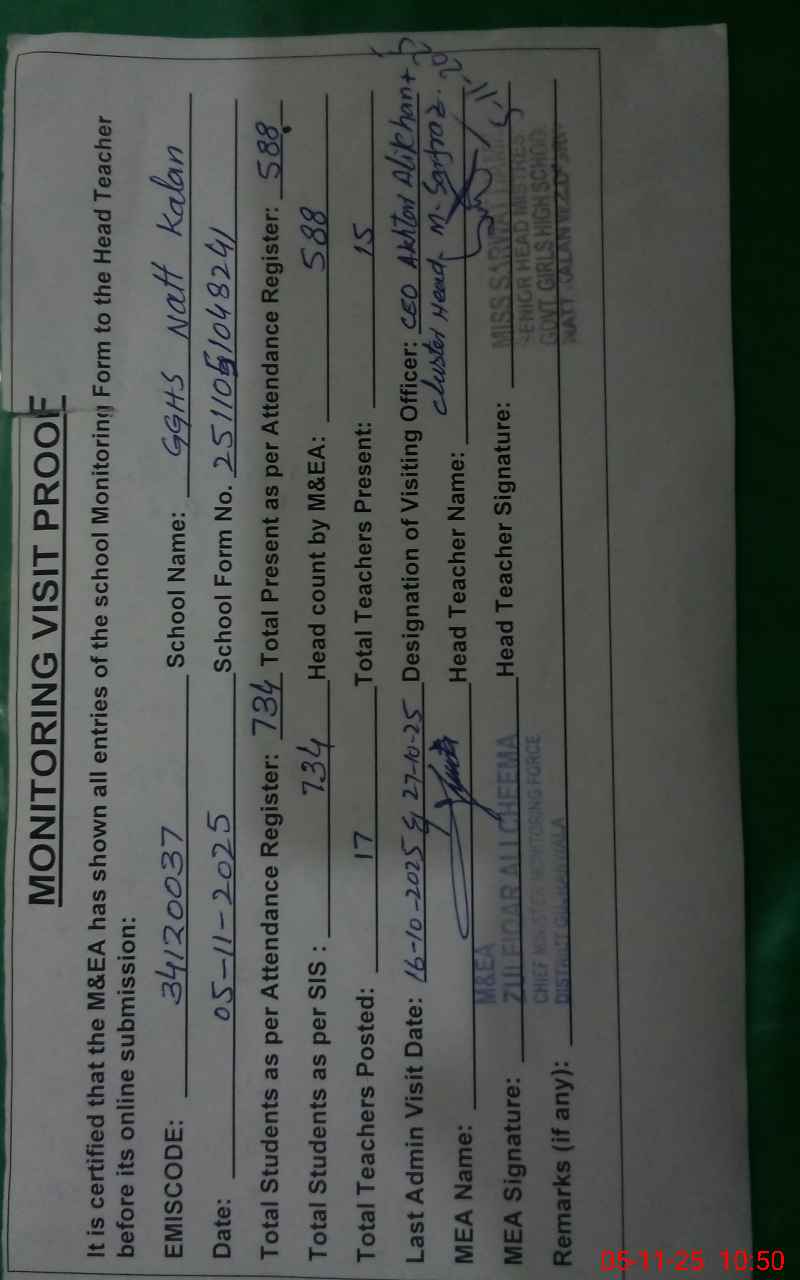 MONITORING VISIT PROOF
It is certified that the M&EA has shown all entries of the school Monitoring Form to the Head Teacher
before its online submission:
EMISCODE: 34120037 School Name: GGHS Natt Kalan
Date: 05-11-2025 School Form No. 251105104824
Total Students as per Attendance Register: 734 Total Present as per Attendance Register: 588
Total Students as per SIS : 734 Head count by M&EA: 588
Total Teachers Posted: 17 Total Teachers Present: 15
Last Admin Visit Date: 16-10-2025 & 27-10-25 Designation of Visiting Officer: CEO Akhtar Ali Khan +
cluster Head. M. Sarfraz.
MEA Name: Head Teacher Name:
M&EA
MEA Signature: Head Teacher Signature:
ZULFIQAR ALI CHEEMA
CHIEF MINISTER MONITORING FORCE
DISTRICT GUJRANWALA
MISS
SENIOR HEAD MISTRES
GOVT. GIRLS HIGH SCHOOL
NATT KALAN
Remarks (if any):
05-11-25 10:50